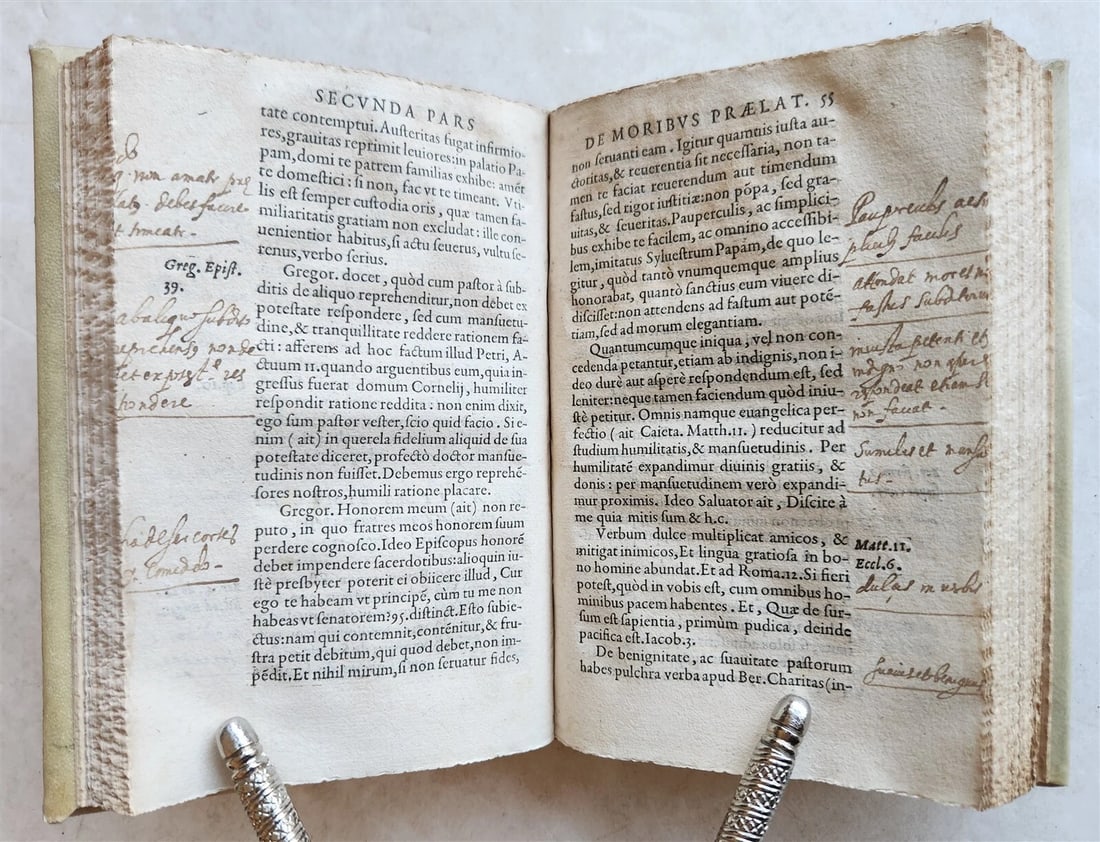 SECVNDA PARS
tate contemptui. Austeritas fugat infirmio-
res, grauitas reprimit leuiores: in palatio Pa-
pam, domi te patrem familias exhibe: amēt
te domestici: si non, fac vt te timeant. Vti-
lis est semper custodia oris, quæ tamen fa-
miliaritatis gratiam non excludat: ille con-
uenientior habitus, si actu seuerus, vultu se-
renus, verbo serius.
Gregor. docet, quòd cum pastor à sub-
ditis de aliquo reprehenditur, non debet ex
potestate respondere, sed cum mansuetu-
dine, & tranquillitate reddere rationem fa-
cti: afferens ad hoc factum illud Petri, A-
ctuum 11. quando arguentibus eum, quia in-
gressus fuerat domum Cornelij, humiliter
respondit ratione reddita. non enim dixit,
ego sum pastor vester, scio quid facio. Si e-
nim (ait) in querela fidelium aliquid de sua
potestate diceret, profectò doctor mansue-
tudinis non fuisset. Debemus ergo reprehē-
sores nostros, humili ratione placare.
Gregor. Honorem meum (ait) non re-
puto, in quo fratres meos honorem suum
perdere cognosco. Ideo Episcopus honorē
debet impendere sacerdotibus: alioquin iu-
stè presbyter poterit ei obiicere illud, Cur
ego te habeam vt principē, cùm tu me non
habeas vt senatorem? 95. distinct. Esto subie-
ctus: nam qui contemnit, contēnitur, & fru-
stra petit debitum, qui quod debet, non im-
pēdit. Et nihil mirum, si non seruatur fides,
non amatr
debes facere
et timeatr.
Greg. Epist.
39.
abaliquo subdit
non de
respondere
DE MORIBVS PRÆLAT. 55
non seruanti eam. Igitur quamuis iusta au-
ctoritas, & reuerentia sit necessaria, non ta-
men te faciat reuerendum aut timendum
fastus, sed rigor iustitiæ: non pōpa, sed gra-
uitas, & seueritas. Pauperculis, ac simplici-
bus exhibe te facilem, ac omnino accessibi-
lem, imitatus Syluestrum Papam, de quo le-
gitur, quòd tantò vnumquemque amplius
honorabat, quantò sanctius eum viuere di-
disciſset: non attendens ad fastum aut potē-
tiam, sed ad morum elegantiam.
Quantumcumque iniqua, vel non con-
cedenda petantur, etiam ab indignis, non i-
deo durè aut asperè respondendum est, sed
leniter: neque tamen faciendum quòd iniu-
stè petitur. Omnis namque euangelica per-
fectio (ait Caieta. Matth. 11.) reducitur ad
studium humilitatis, & mansuetudinis. Per
humilitatē expandimur diuinis gratiis, &
donis: per mansuetudinem verò expandi-
mur proximis. Ideo Saluator ait, Discite à
me quia mitis sum & h.c.
Verbum dulce multiplicat amicos, &
mitigat inimicos, Et lingua gratiosa in bo-
no homine abundat. Et ad Roma. 12. Si fieri
potest, quòd in vobis est, cum omnibus ho-
minibus pacem habentes. Et, Quæ de sur-
sum est sapientia, primùm pudica, deinde
pacifica est. Iacob. 3.
De benignitate, ac suauitate pastorum
habes pulchra verba apud Ber. Charitas (in-
facilis
attendat mores n
fastus subditorum
iniusta petenti et
non
respondeat etiam
non faciat.
et mansue
tus.
Matt. 11.
Eccl. 6.
dulcis in verbis